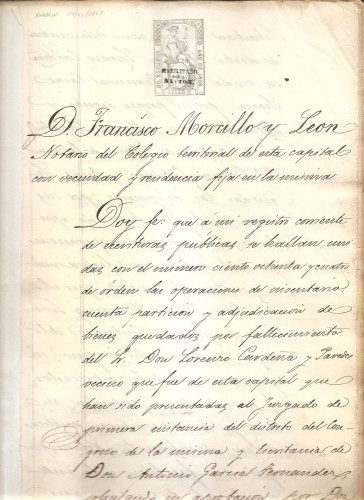 HABILITADO
POR LA
NACION.
D. Francisco Morcillo y Leon
Notario del Colegio territorial de esta capital
con vecindad y residencia fija en la misma
Doy fe: que á mi registro corriente
de escrituras publicas se hallan uni-
das con el número ciento ochenta y cuatro
de órden las operaciones de inventario,
cuenta particion y adjudicacion de
bienes quedados por fallecimiento
del Sr. Don Lorenzo Cardena y Paredes
vecino que fue de esta capital que
han sido presentadas al Juzgado de
primera instancia del distrito del Con-
greso de la misma y Escribania de
Don Antonio Garcia Fernandez,
por